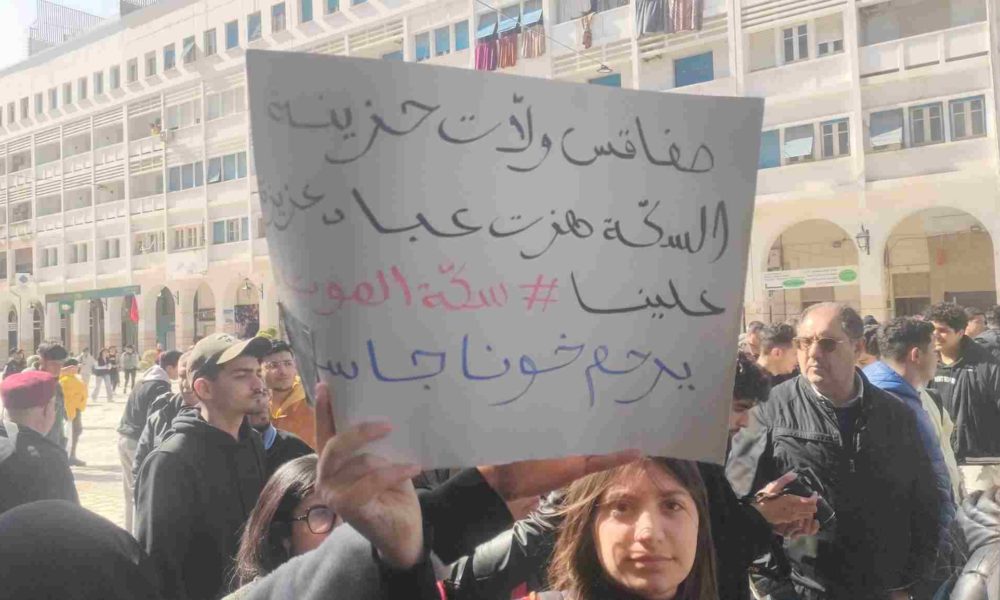 صفاقس ولاّت حزينة
السكّة هزت عباد عزيزة
علينا #سكّة الموت
يرحم خونا جاسر